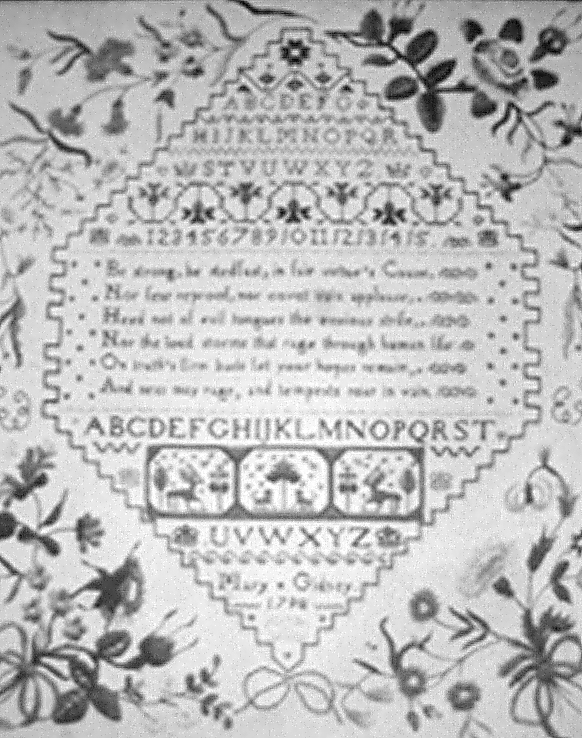 ABCDEFG
HIJKLMNOPQR
STVUWXYZ
1 2 3 4 5 6 7 8 9 10 11 12 13 14 15
Be strong, be stedfast, in fair virtue's Cause,
Nor fear reproof, nor covet vain applause,
Heed not of evil tongues the envious strife,
Nor the loud storms that rage through human life
On truth's firm basis let your hopes remain,
And seas may rage, and tempests roar in vain.
ABCDEFGHIJKLMNOPQRST
UVWXYZ
Mary Gidney